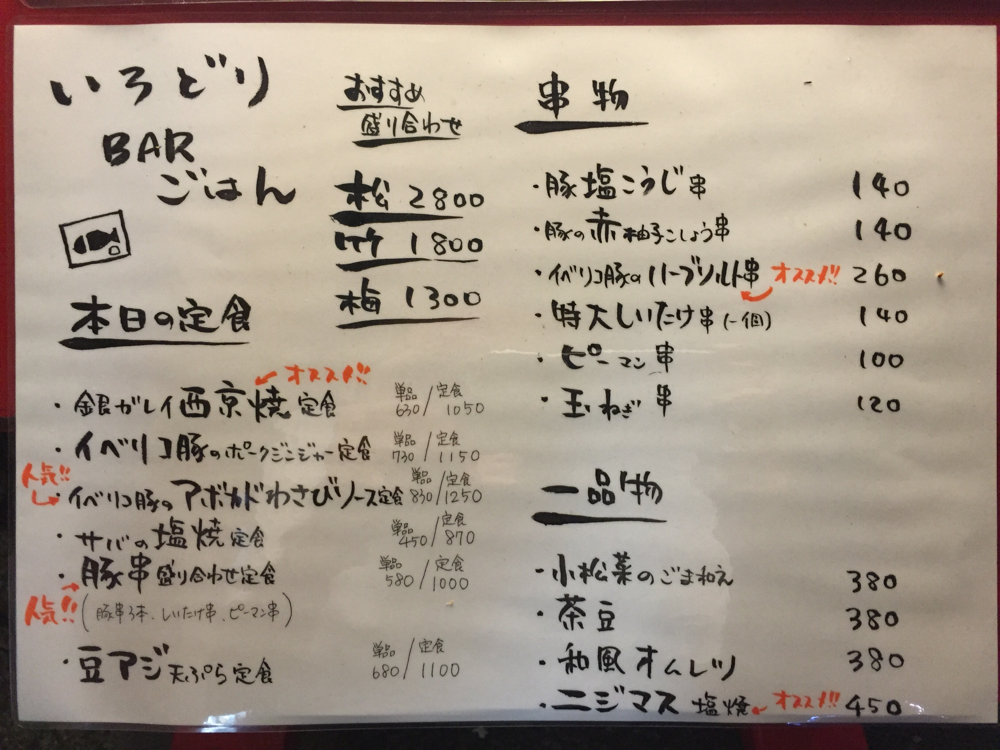 いろどり
BAR
ごはん
おすすめ
盛り合わせ
松 2800
竹 1800
梅 1300
本日の定食
オススメ!!
・銀ガレイ西京焼定食 単品630/定食1050
・イベリコ豚のポークジンジャー定食 単品730/定食1150
人気!!
・イベリコ豚のアボカドわさびソース定食 単品830/定食1250
・サバの塩焼定食 単品450/定食870
・豚串盛り合わせ定食 単品580/定食1000
人気!! (豚串3本、しいたけ串、ピーマン串)
・豆アジ天ぷら定食 単品680/定食1100
串物
・豚塩こうじ串 140
・豚の赤柚子こしょう串 140
・イベリコ豚のハーブソルト串 オススメ!! 260
・特大しいたけ串(一個) 140
・ピーマン串 100
・玉ねぎ串 120
一品物
・小松菜のごまねえ 380
・茶豆 380
・和風オムレツ 380
・ニジマス塩焼 オススメ!! 450